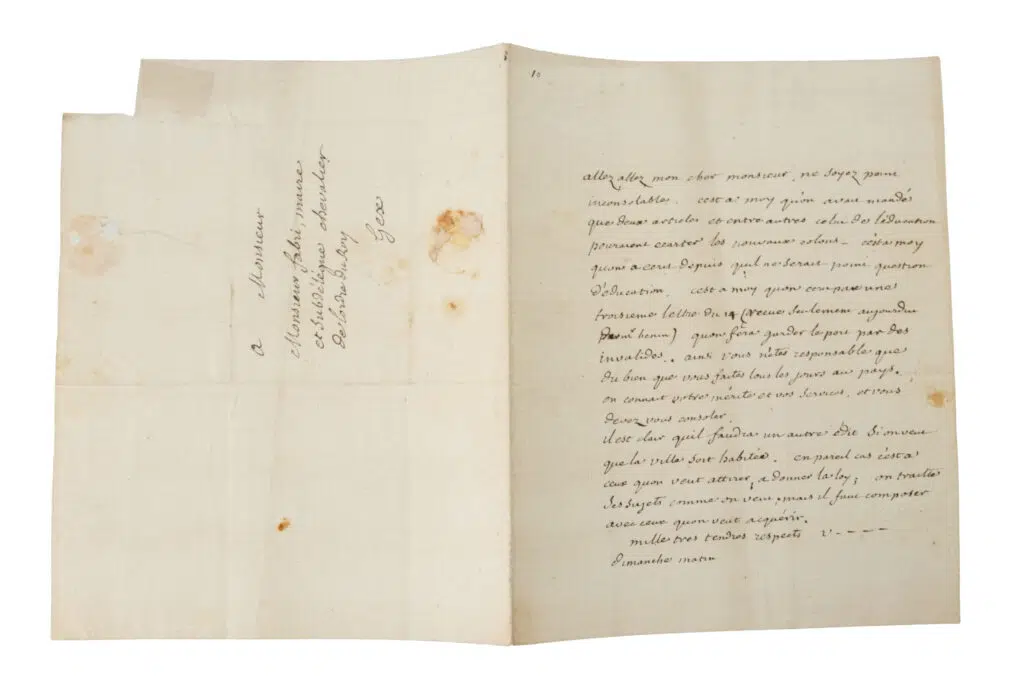 a Monsieur
Monsieur fabri, maire
et Subdélégué chevalier
de l'ordre du Roy
Gex
10
allez allez mon cher monsieur, ne soyez point
inconsolable. c'est a moy qu'on avait mandé
que deux articles et entre autres celui de l'éducation
pouraient ecarter les nouveaux colons - c'est a moy
qu'on a ecrit depuis qu'il ne serait point question
d'éducation. c'est a moy qu'on ecrit par une
troisieme lettre du 14 (recue seulement aujourdui
par mr henin) qu'on fera garder le port par des
invalides. ainsi vous n'etes responsable que
du bien que vous faites tous les jours au pays.
on connait votre mérite et vos services, et vous
devez vous consoler.
il est clair qu'il faudra un autre édit si on veut
que la ville soit habitée. en pareil cas c'est a
ceux qu'on veut attirer, a donner la loy; on traitte
ses sujets comme on veut, mais il faut composer
avec ceux qu'on veut acquérir.
mille tres tendres respects V-----
dimanche matin